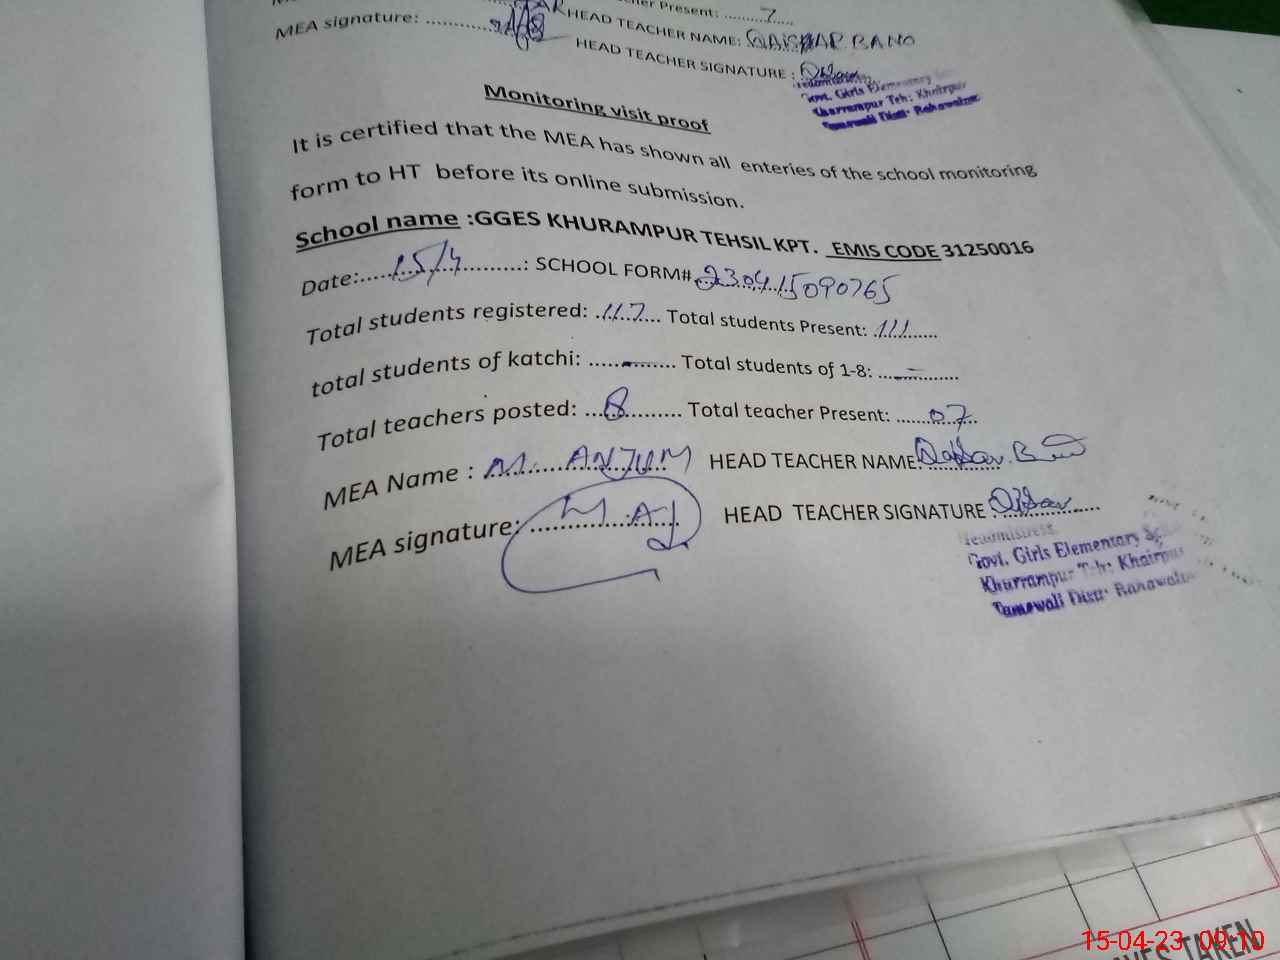 cher Present: ...........7.....
MEA signature: ............. HEAD TEACHER NAME: QAISAR BANO
HEAD TEACHER SIGNATURE :
Headmistress
Govt. Girls Elementary
Khurrampur Teh: Khairpur
Tamewali Distt: Bahawalnar
Monitoring visit proof
It is certified that the MEA has shown all enteries of the school monitoring
form to HT before its online submission.
School name :GGES KHURAMPUR TEHSIL KPT. EMIS CODE 31250016
Date:......15/4............: SCHOOL FORM# 230415090765
Total students registered: .117.... Total students Present: 111.......
total students of katchi: ......-........ Total students of 1-8: ...-.........
Total teachers posted: ...8.......... Total teacher Present: ......07..
MEA Name : M. ANJUM HEAD TEACHER NAME:
MEA signature: ................. HEAD TEACHER SIGNATURE :
Headmistress
Govt. Girls Elementary
Khurrampur Teh: Khairpur
Tamewali Distt: Bahawalnar
TAKEN
15-04-23 09:10